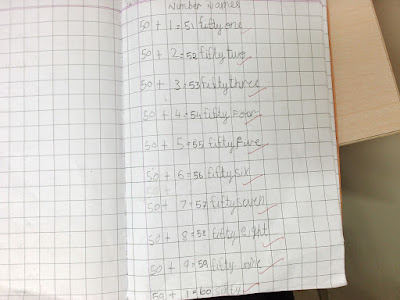 Number Names
50 + 1 = 51 fifty one
50 + 2 = 52 fifty two
50 + 3 = 53 fifty three
50 + 4 = 54 fifty Four
50 + 5 = 55 fifty Five
50 + 6 = 56 fifty six
50 + 7 = 57 fifty seven
50 + 8 = 58 fifty Eight
50 + 9 = 59 fifty
59 + 1 = 60